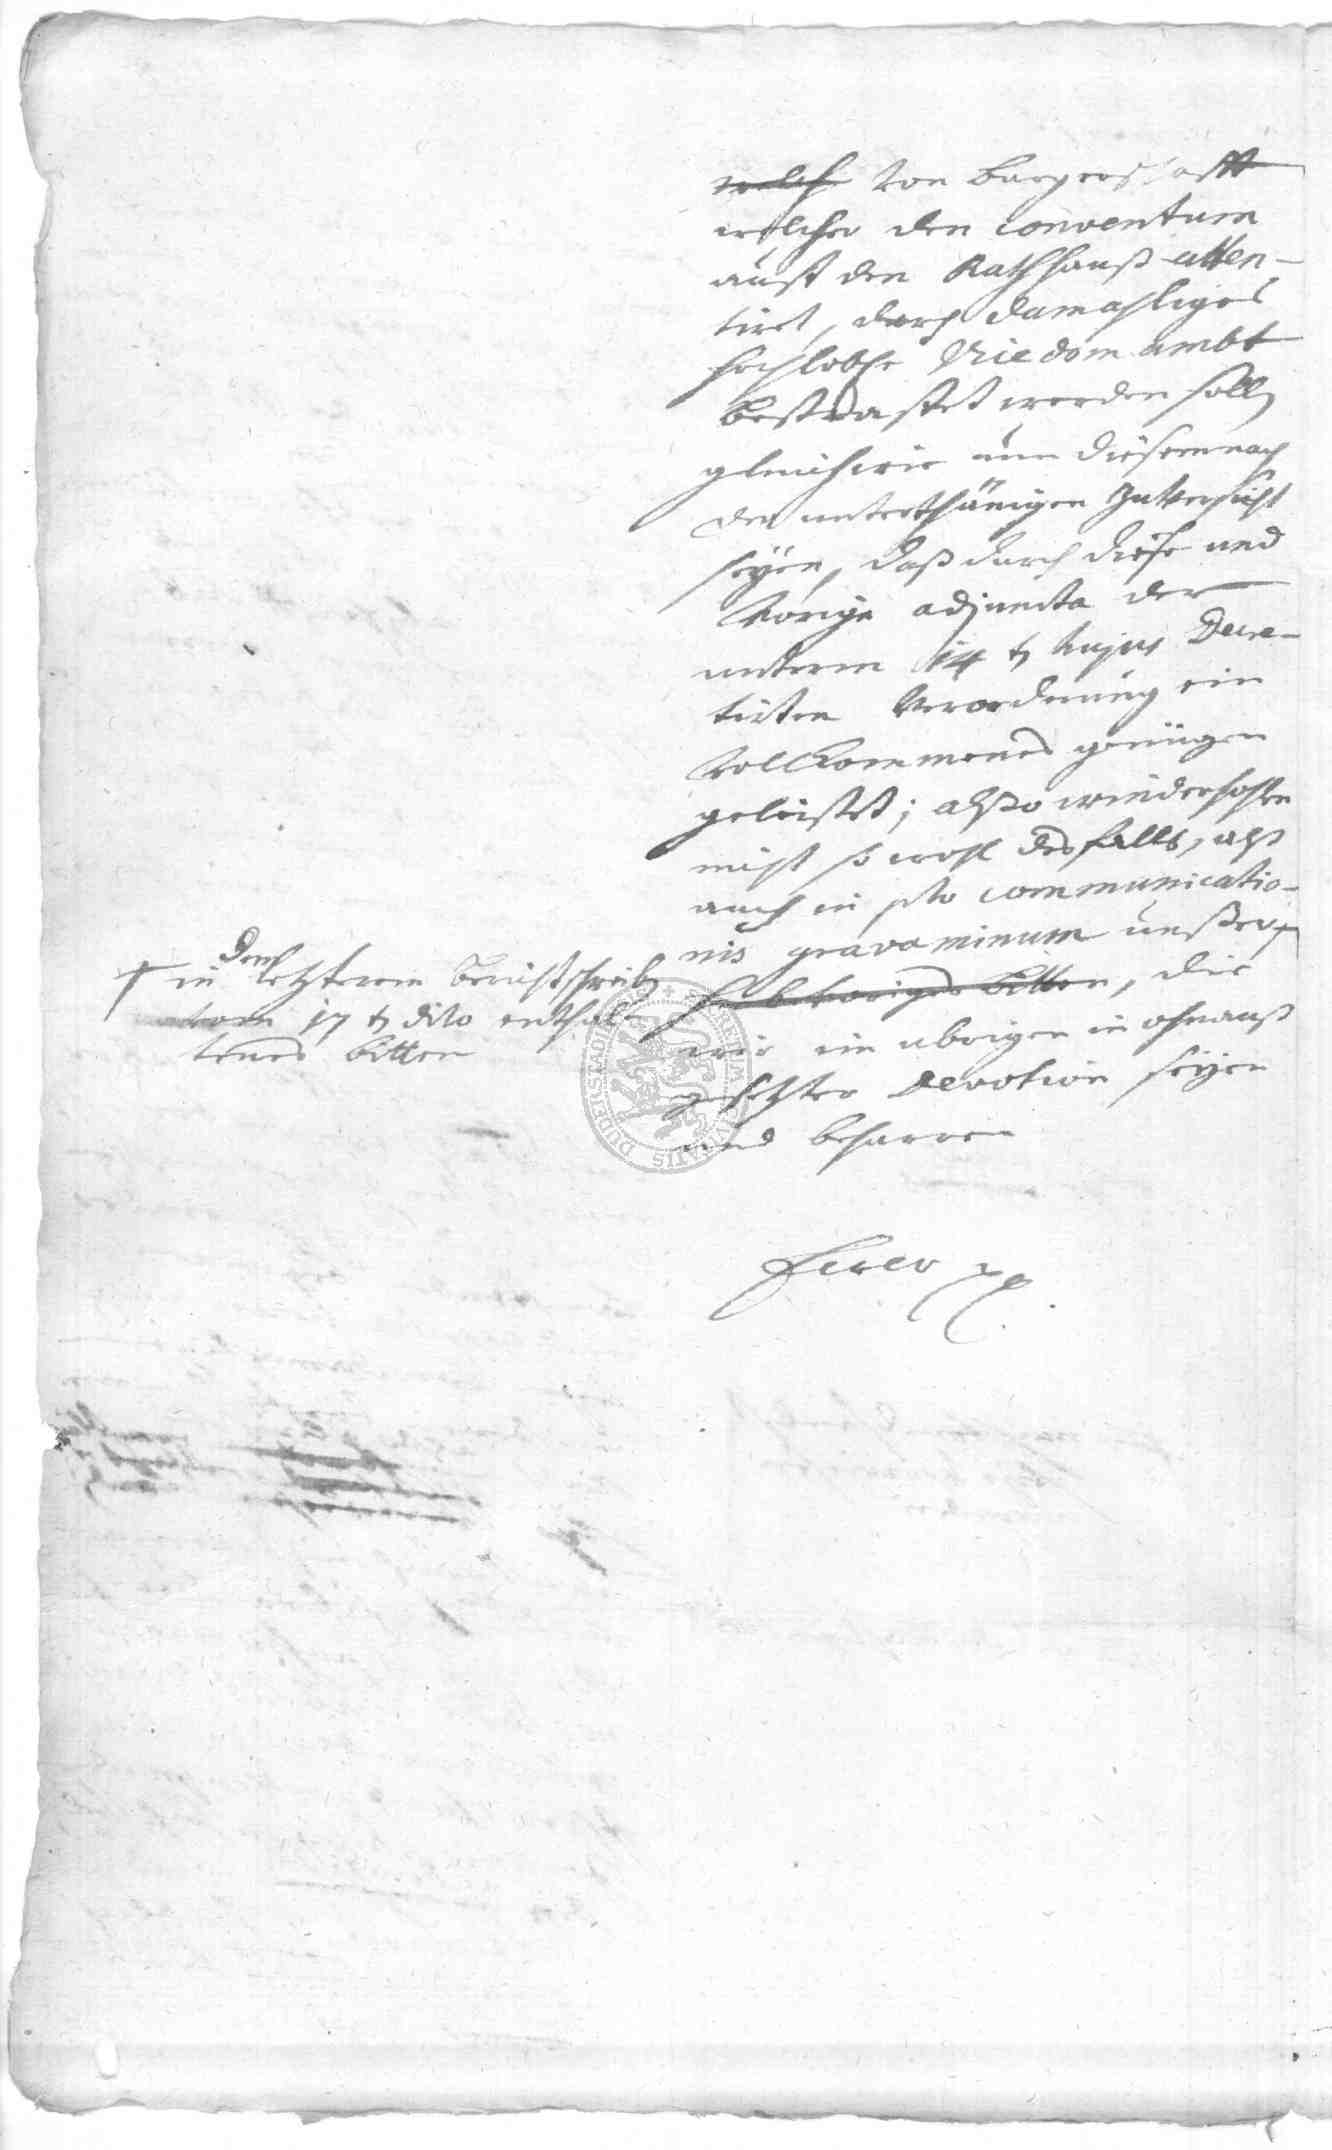 welche von burgerschafft
welcher den conventum
auff den Rathhauß atten-
tiret, durch damahliges
hochlobhe Vicedom ambt
bestraffet werden solle,
gleichwie nun diesemnach
der unterthänigen Zuversicht
seyen, daß durch diese und
vorige adjuncta der
unterm 14 t hujus Decre-
tirten Verordnung ein
vollkommenes genügen
geleistet; also wiederhohlen
nicht so wohl desfalls, alß
auch in pto communicatio-
nis gravaminum unßer
voriges bitten, die
wir im ubrigen in ohnauß
gesetzter Devotion seyen
und beharren
in dem letzterem berichtschreiben
vom 17 t dito enthal-
tenes bitten
Ewer
SIGILLUM SECRETUM CIVITATIS DUDERSTADT